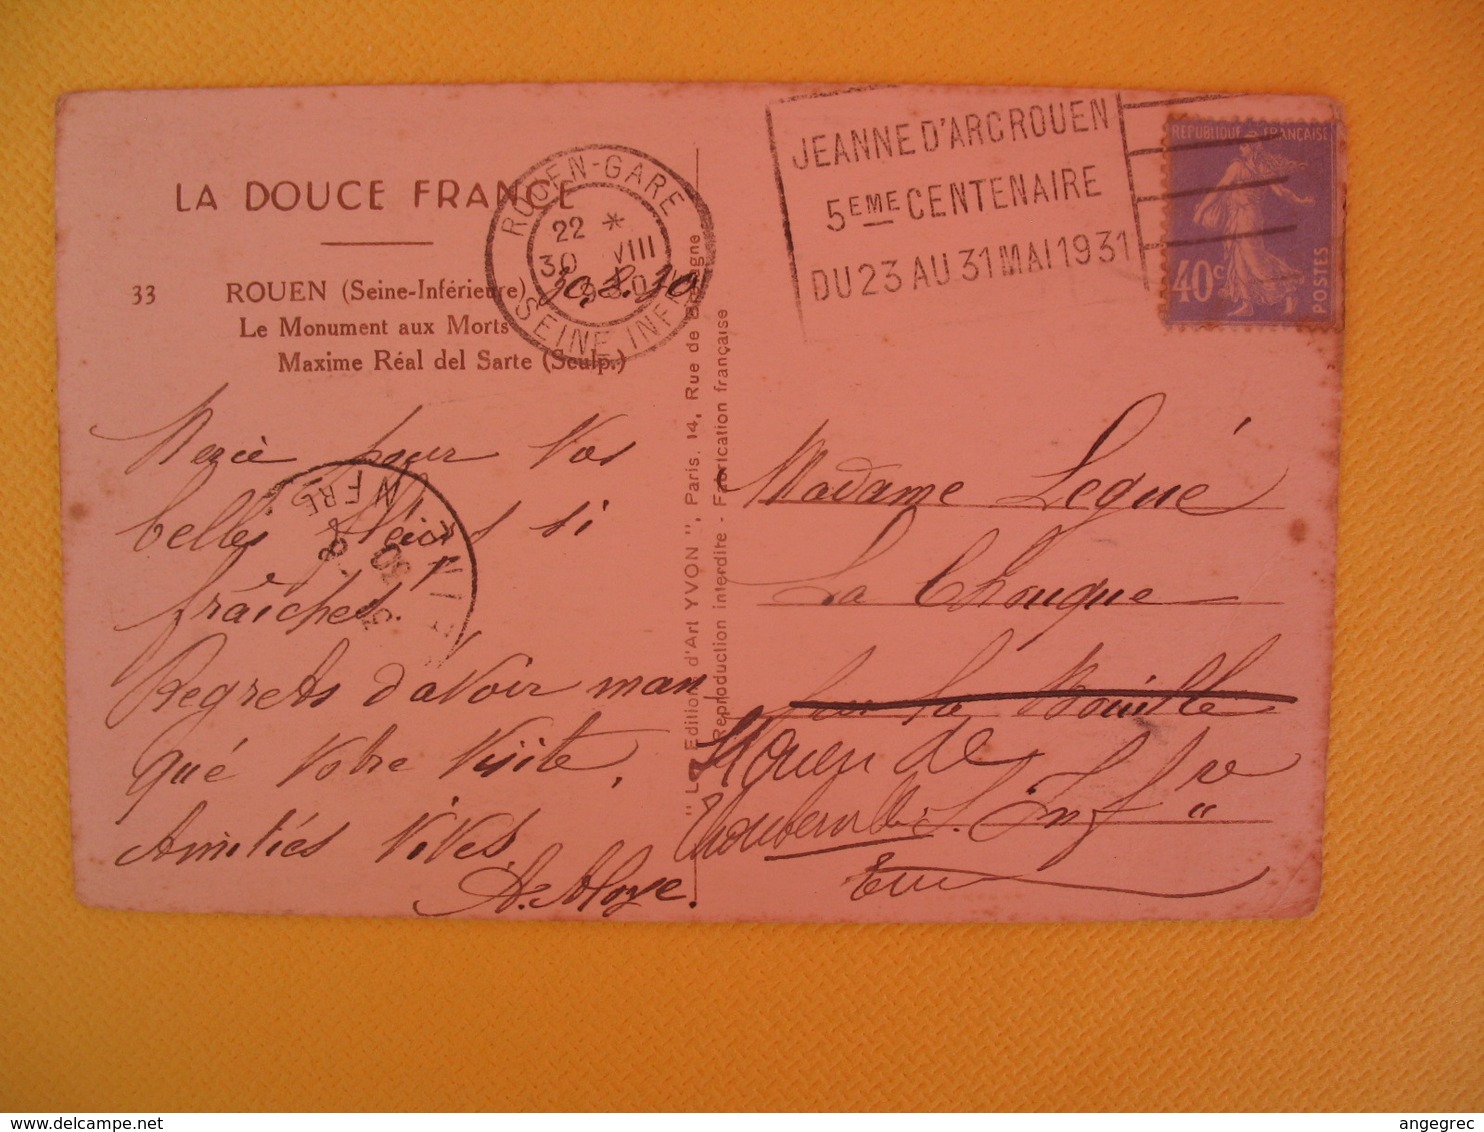 LA DOUCE FRANCE
33 ROUEN (Seine-Inférieure)
Le Monument aux Morts
Maxime Réal del Sarte (Sculp.)
ROUEN-GARE
22 *
30 VIII
30
SEINE INFRE
30.8.30
Merci pour Vos
belles fleurs si
fraîches.
Regrets d'avoir man
qué Votre Visite,
Amitiés Vives.
"La Edition d'Art YVON", Paris. 14, Rue de Bretagne
Reproduction interdite - Fabrication française
JEANNE D'ARC ROUEN
5EME CENTENAIRE
DU 23 AU 31 MAI 1931
REPUBLIQUE FRANÇAISE
40c
POSTES
Madame Legué
La Chouque
sur la Bouille
S. Infre
delcampe.net
angegrec